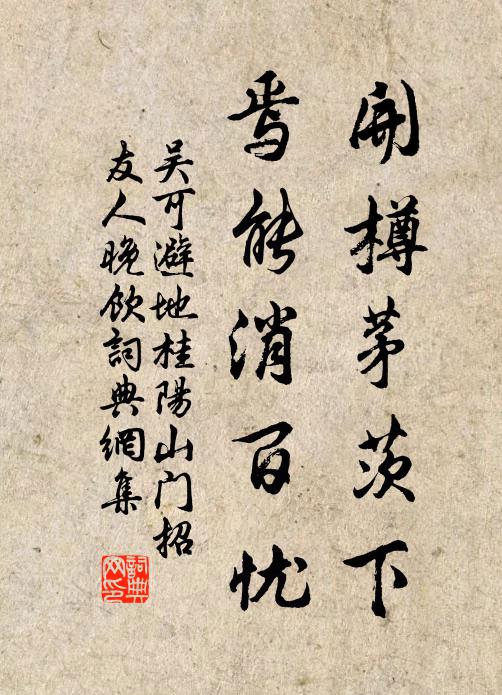 開樽茅茨下
焉能消百忧
吴可避地桂陽山门招
友人晚飲詞典網集
詞典
网印